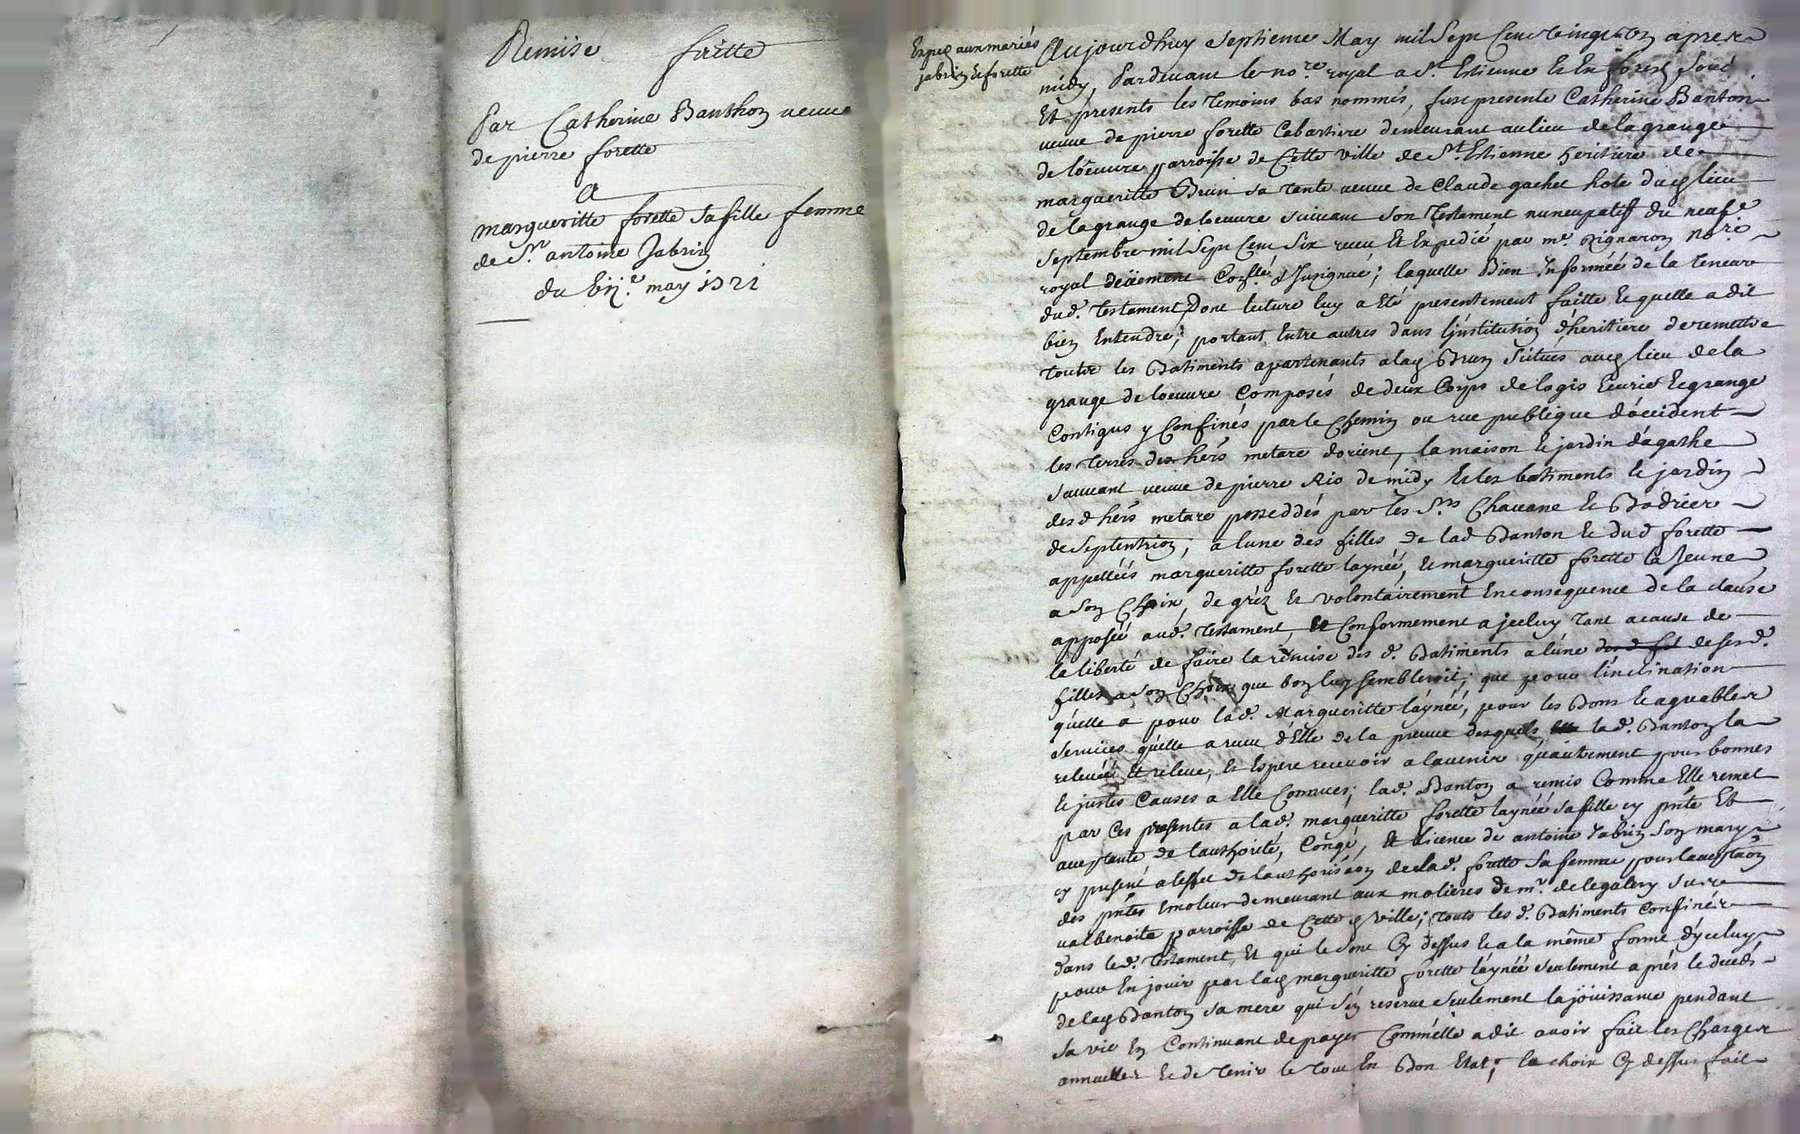 Remise faitte
Par Catherine Banthon veuve
de pierre forette
A
margueritte forette sa fille femme
de Sr. antoine Jabrin
du vije. may 1721
Exped aux mariés
jabrin & forette
Aujourdhuy septieme May mil Sept Cent vingt un apres
midy, Pardevant le nore. royal a St. Estienne & En forest Sousé
Et presents les temoins bas nommés, fust presente Catherine Banton
veuve de pierre forette Cabartiere demeurant au lieu de la grange
de loeuvre parroisse de Cette ville de St. Estienne heritiere de
margueritte Brun sa tante veuve de Claude gachet hote dud lieu
de la grange de loeuvre suivant son testament nuncupatif du neufe.
septembre mil Sept Cent Six receu Et Expedié par me. nore.
royal deüement Conllé. & Insignué; laquelle Bien Informée de la teneur
dud. testament Dont lecture luy a eté presentement faitte & quelle a dit
bien Entendre; portant Entre autres dans l'institution d'heritiere de remettre
toutte les Batiments apartenants a lad Brun situés aud lieu de la
grange de loeuvre Composés de deux Corps de logis Ecurie & grange
Contigus y Confinés par le Chemin ou rue publique d'occident
les terres des hers metare dorient, la maison & jardin d'agathe
Sauvant veuve de pierre Rio de midy & les batiments & jardin
desd hers metare posseddés par les Srs Chavane & Bodrier
de Septentrion; a lune des filles de lad Banton & dud forette
appellées margueritte forette laynée, & margueritte forette la Jeune
a son Choix, de gréz et volontairement En consequence de la clause
apposée aud. testament, Et Conformement a jcelluy tant a cause de
la liberté de faire la remise des d. Batiments a l'une des d. fil de ses d.
filles a son Choix que bon luy sembleroit; que pour l'inclination
quelle a pour lad. Margueritte laynée, pour les Bons & agreables
services quelle a receu d'Elle de la preuve desquels lad. Banton la
relevée Et releve, & Espere recevoir a lavenir qu'autrement pour bonnes
& justes Causes a Elle Connues; lad. Banton a remis Comme Elle remet
par Ces presentes a lad. margueritte forette laynée sa fille cy pnte Et
acceptante de l'authorité, Congé, Et licence de antoine Jabrin son mary
cy present a leffet de lauthorisaon de lad. forette sa femme pour lacceptaon
des pntes Emoleur demeurant aux molieres de mr. de legalery sur
valbenoite parroisse de Cette d ville; touts les d. Batiments Confinés
dans led. testament, Et qui le sont Cy dessus & a la même forme d'yceluy
pour En jouir par lad margueritte forette laynée seulement aprés le decéds
de lad Banton sa mere qui s'en reserve seulement la joüissance pendant
sa vie En Continuant de payer Comm'elle a dit avoir fait les Charges
annuelles & de tenir le tout En Bon Etat; le choix Cy dessus fait